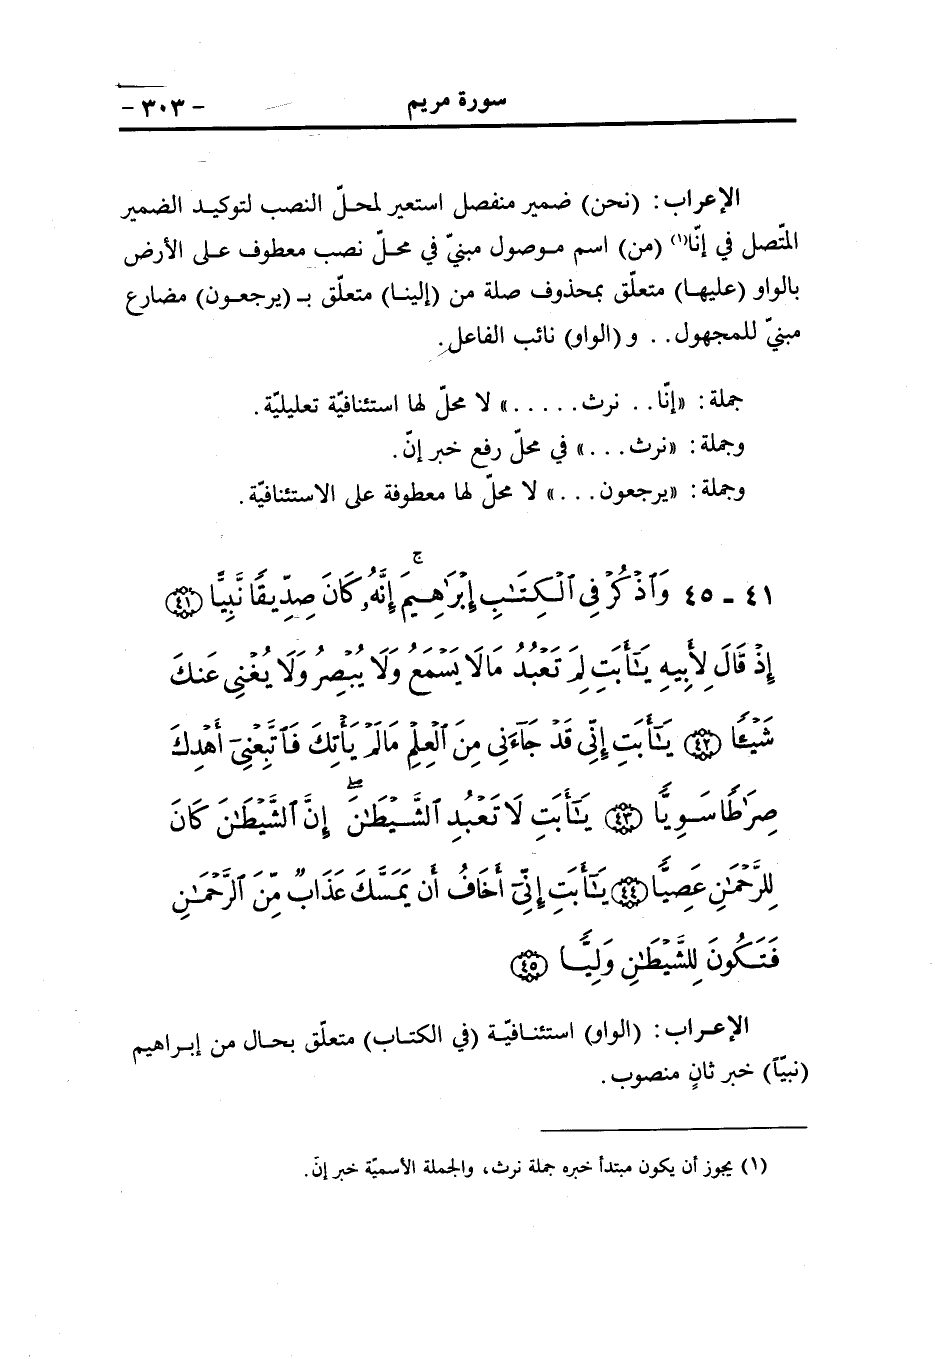 سورة مريم - ٣٠٣ -
الإعراب: (نحن) ضمير منفصل استعير لمحلّ النصب لتوكيد الضمير
المتّصل في إنّا(١) (من) اسم موصول مبنيّ في محلّ نصب معطوف على الأرض
بالواو (عليها) متعلّق بمحذوف صلة من (إلينا) متعلّق بـ (يرجعون) مضارع
مبنيّ للمجهول.. و (الواو) نائب الفاعل.
جملة: «إنّا.. نرث.....» لا محلّ لها استئنافيّة تعليليّة.
وجملة: «نرث...» في محلّ رفع خبر إنّ.
وجملة: «يرجعون...» لا محلّ لها معطوفة على الاستئنافيّة.
٤١ - ٤٥ وَٱذْكُرْ فِى ٱلْكِتَـٰبِ إِبْرَٰهِيمَ ۚ إِنَّهُۥ كَانَ صِدِّيقًا نَّبِيًّا ﴿٤١﴾
إِذْ قَالَ لِأَبِيهِ يَـٰٓأَبَتِ لِمَ تَعْبُدُ مَا لَا يَسْمَعُ وَلَا يُبْصِرُ وَلَا يُغْنِى عَنكَ
شَيْـًٔا ﴿٤٢﴾ يَـٰٓأَبَتِ إِنِّى قَدْ جَآءَنِى مِنَ ٱلْعِلْمِ مَا لَمْ يَأْتِكَ فَٱتَّبِعْنِىٓ أَهْدِكَ
صِرَٰطًا سَوِيًّا ﴿٤٣﴾ يَـٰٓأَبَتِ لَا تَعْبُدِ ٱلشَّيْطَـٰنَ ۖ إِنَّ ٱلشَّيْطَـٰنَ كَانَ
لِلرَّحْمَـٰنِ عَصِيًّا ﴿٤٤﴾ يَـٰٓأَبَتِ إِنِّىٓ أَخَافُ أَن يَمَسَّكَ عَذَابٌ مِّنَ ٱلرَّحْمَـٰنِ
فَتَكُونَ لِلشَّيْطَـٰنِ وَلِيًّا ﴿٤٥﴾
الإعراب: (الواو) استئنافيّة (في الكتاب) متعلّق بحال من إبراهيم
(نبيّاً) خبر ثانٍ منصوب.
(١) يجوز أن يكون مبتدأ خبره جملة نرث، والجملة الأسميّة خبر إنّ.